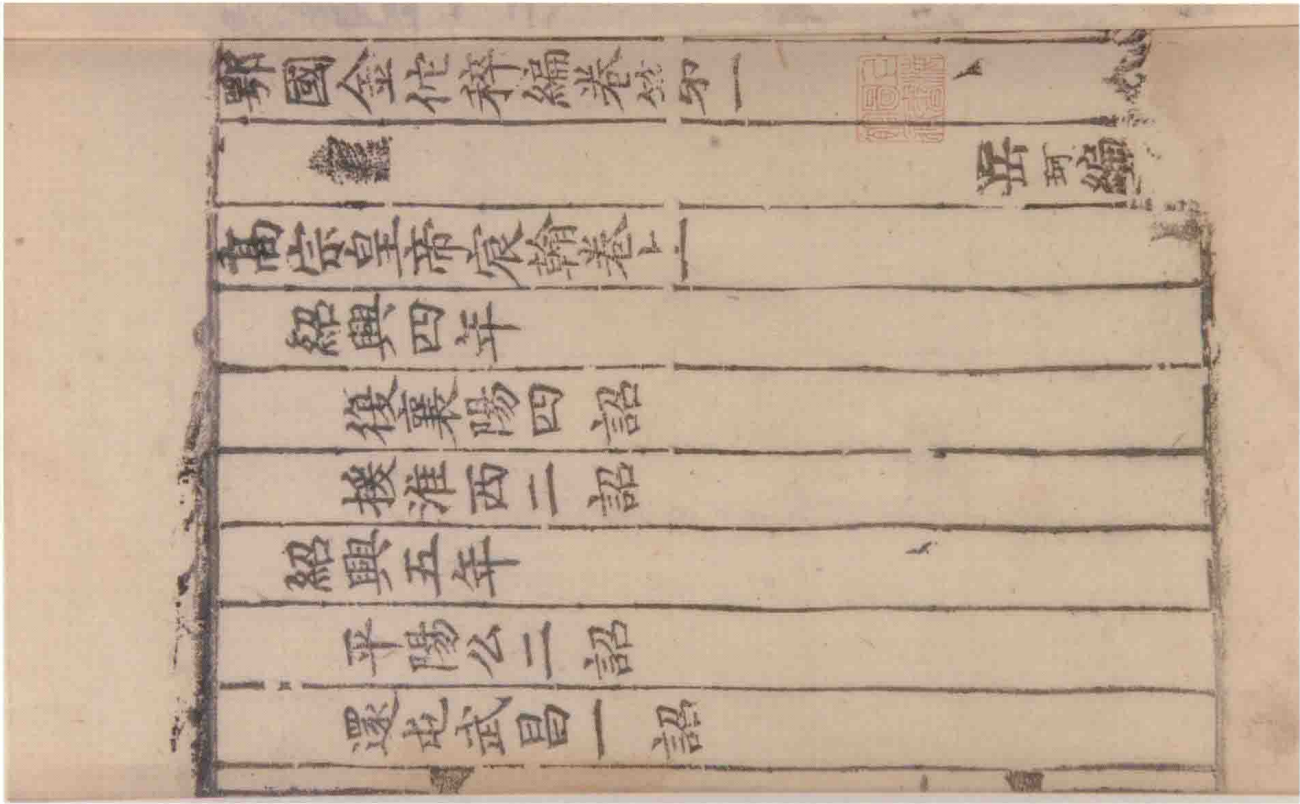 鄂國金佗稡編卷第一
岳珂編
高宗皇帝宸翰卷上
紹興四年
復襄陽四詔
援淮西二詔
紹興五年
平陽么二詔
還屯武昌一詔